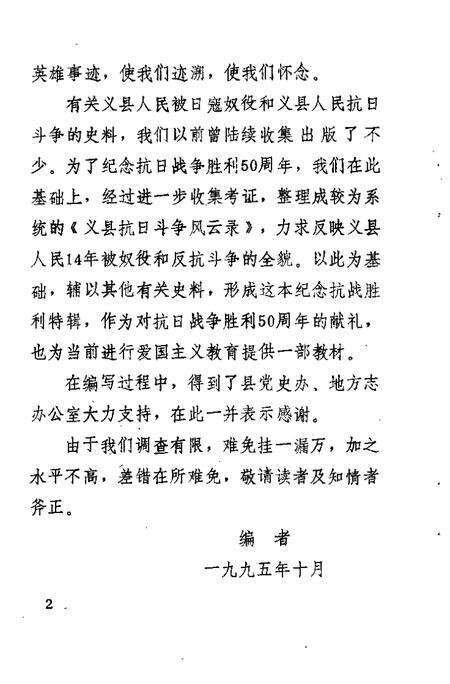 英雄事迹，使我们追溯，使我们怀念。
有关义县人民被日寇奴役和义县人民抗日
斗争的史料，我们以前曾陆续收集出版了不
少。为了纪念抗日战争胜利50周年，我们在此
基础上，经过进一步收集考证，整理成较为系
统的《义县抗日斗争风云录》，力求反映义县
人民14年被奴役和反抗斗争的全貌。以此为基
础，辅以其他有关史料，形成这本纪念抗战胜
利特辑，作为对抗日战争胜利50周年的献礼，
也为当前进行爱国主义教育提供一部教材。
在编写过程中，得到了县党史办、地方志
办公室大力支持，在此一并表示感谢。
由于我们调查有限，难免挂一漏万，加之
水平不高，差错在所难免，敬请读者及知情者
斧正。
编者
一九九五年十月
2